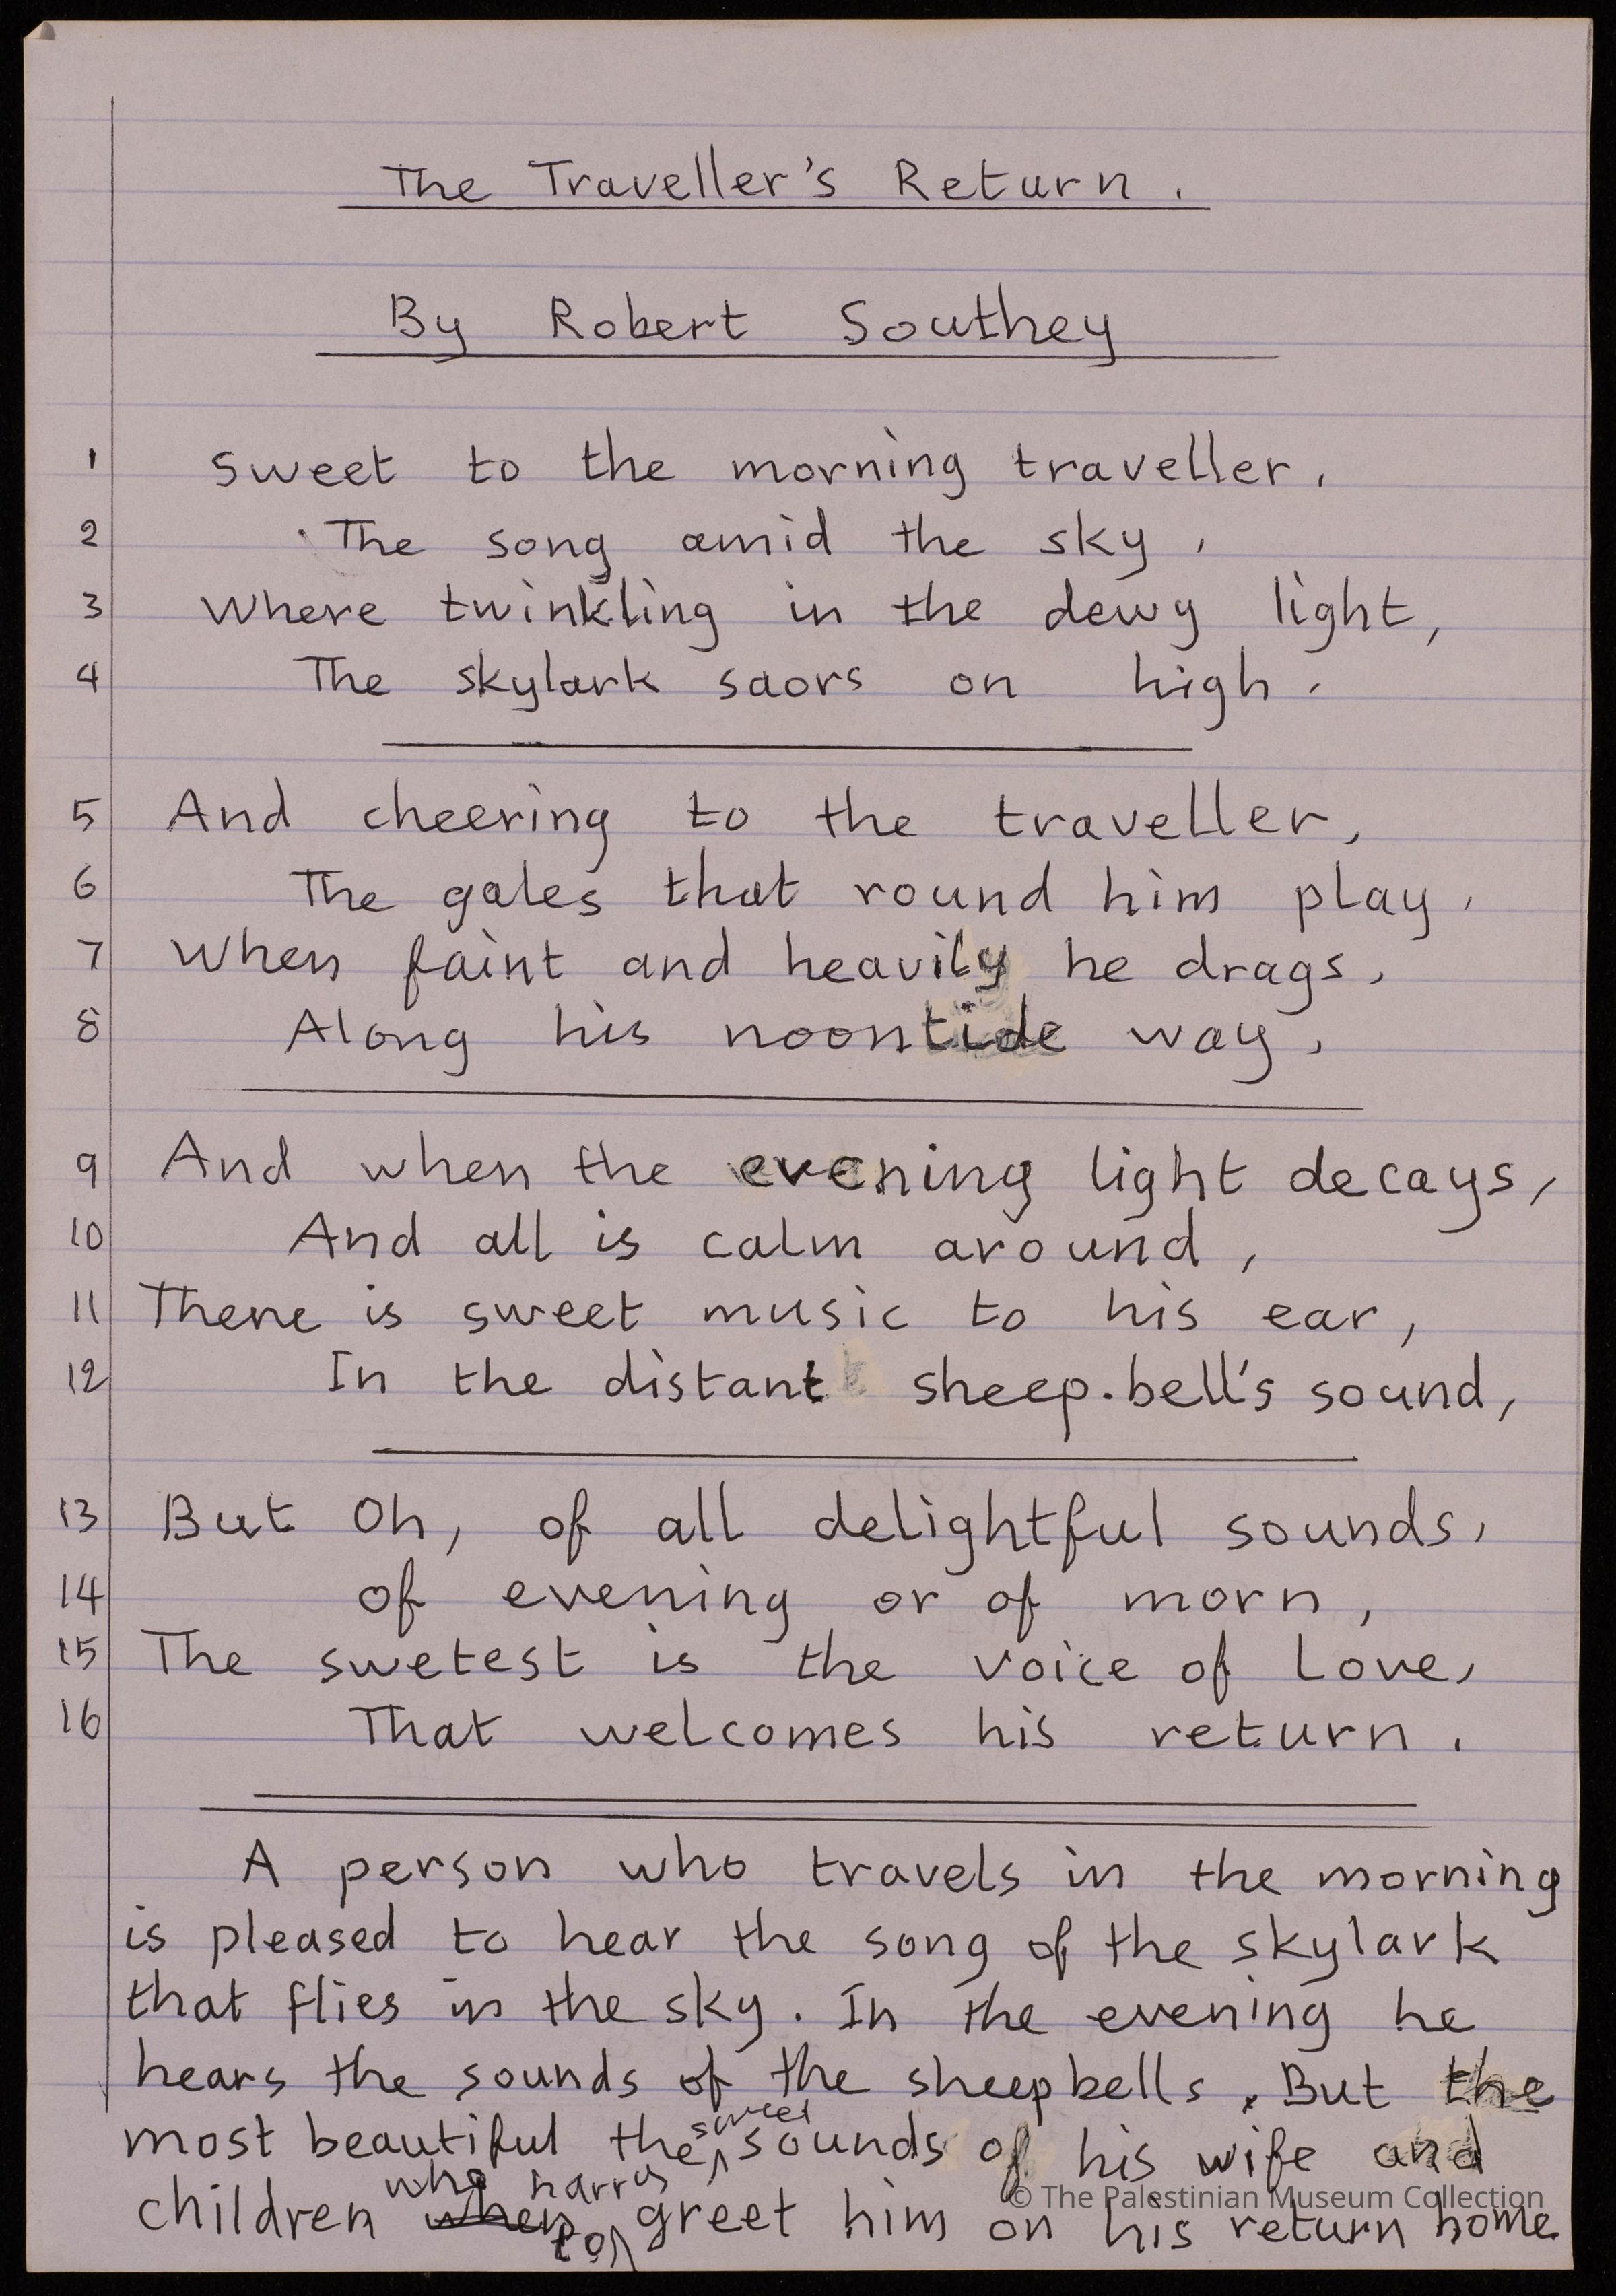 The Traveller's Return.
By Robert Southey
1 Sweet to the morning traveller,
2 The song amid the sky,
3 Where twinkling in the dewy light,
4 The skylark saors on high.
5 And cheering to the traveller,
6 The gales that round him play,
7 When faint and heavily he drags,
8 Along his noontide way,
9 And when the evening light decays,
10 And all is calm around,
11 There is sweet music to his ear,
12 In the distant sheep-bell's sound,
13 But Oh, of all delightful sounds,
14 of evening or of morn,
15 The swetest is the voice of Love,
16 That welcomes his return.
A person who travels in the morning
is pleased to hear the song of the skylark
that flies in the sky. In the evening he
hears the sounds of the sheepbells. But the
most beautiful the sweet sounds of his wife and
children who harry to greet him on his return home
© The Palestinian Museum Collection